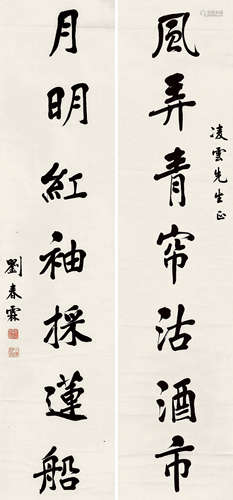 凌雲先生正
風弄青帘沽酒市
月明紅袖採蓮船
劉春霖